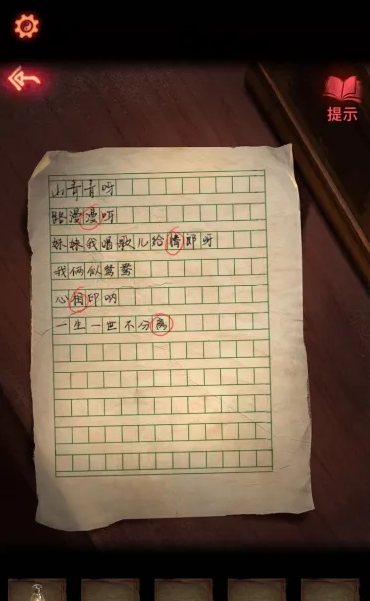 提示
山青青呀
路漫漫呀
妹妹我唱歌儿给情郎呀
我俩似鸳鸯
心相印哟
一生一世不分离